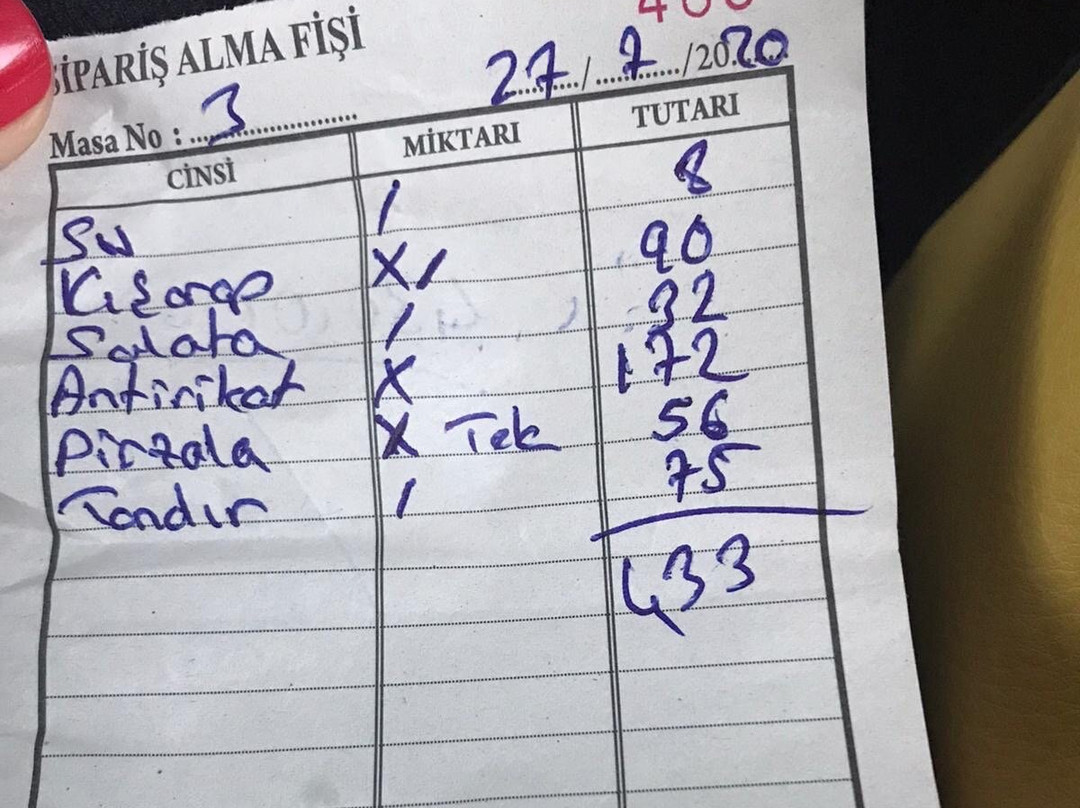 SİPARİŞ ALMA FİŞİ
27/7/2020
Masa No : 3
CİNSİ MİKTARI TUTARI
Su / 8
K.Şarap X/ 90
Salata / 32
Antirikot X 172
Pirzola X Tek 56
Tandır / 75
433